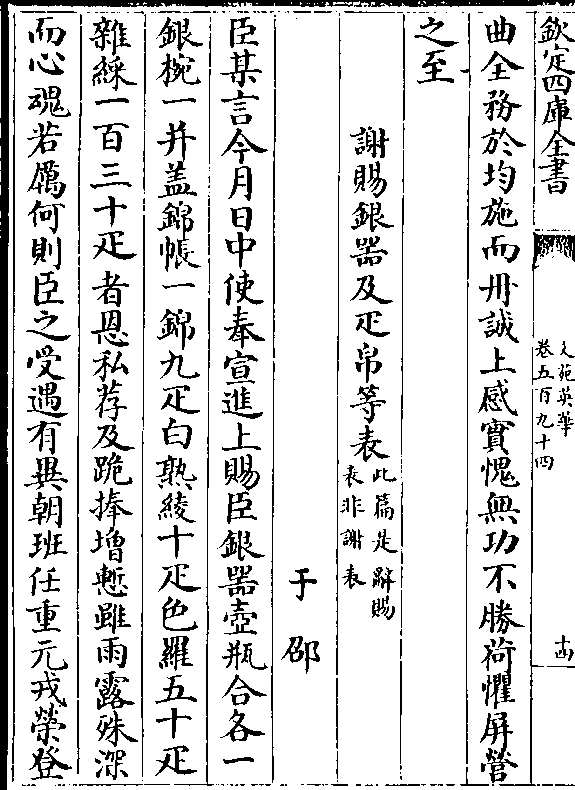 欽定四庫全書
文苑英華
卷五百九十四
十四
曲全務於均施而丹誠上感實愧無功不勝荷懼屏營
之至
謝賜銀器及疋帛等表此篇是辭賜
表非謝表
于邵
臣某言今月日中使奉宣進上賜臣銀器壺瓶合各一
銀椀一并盖錦帳一錦九疋白熟綾十疋色羅五十疋
雜綵一百三十疋者恩私荐及跪捧增慙雖雨露殊深
而心魂若厲何則臣之受遇有異朝班任重元戎榮登